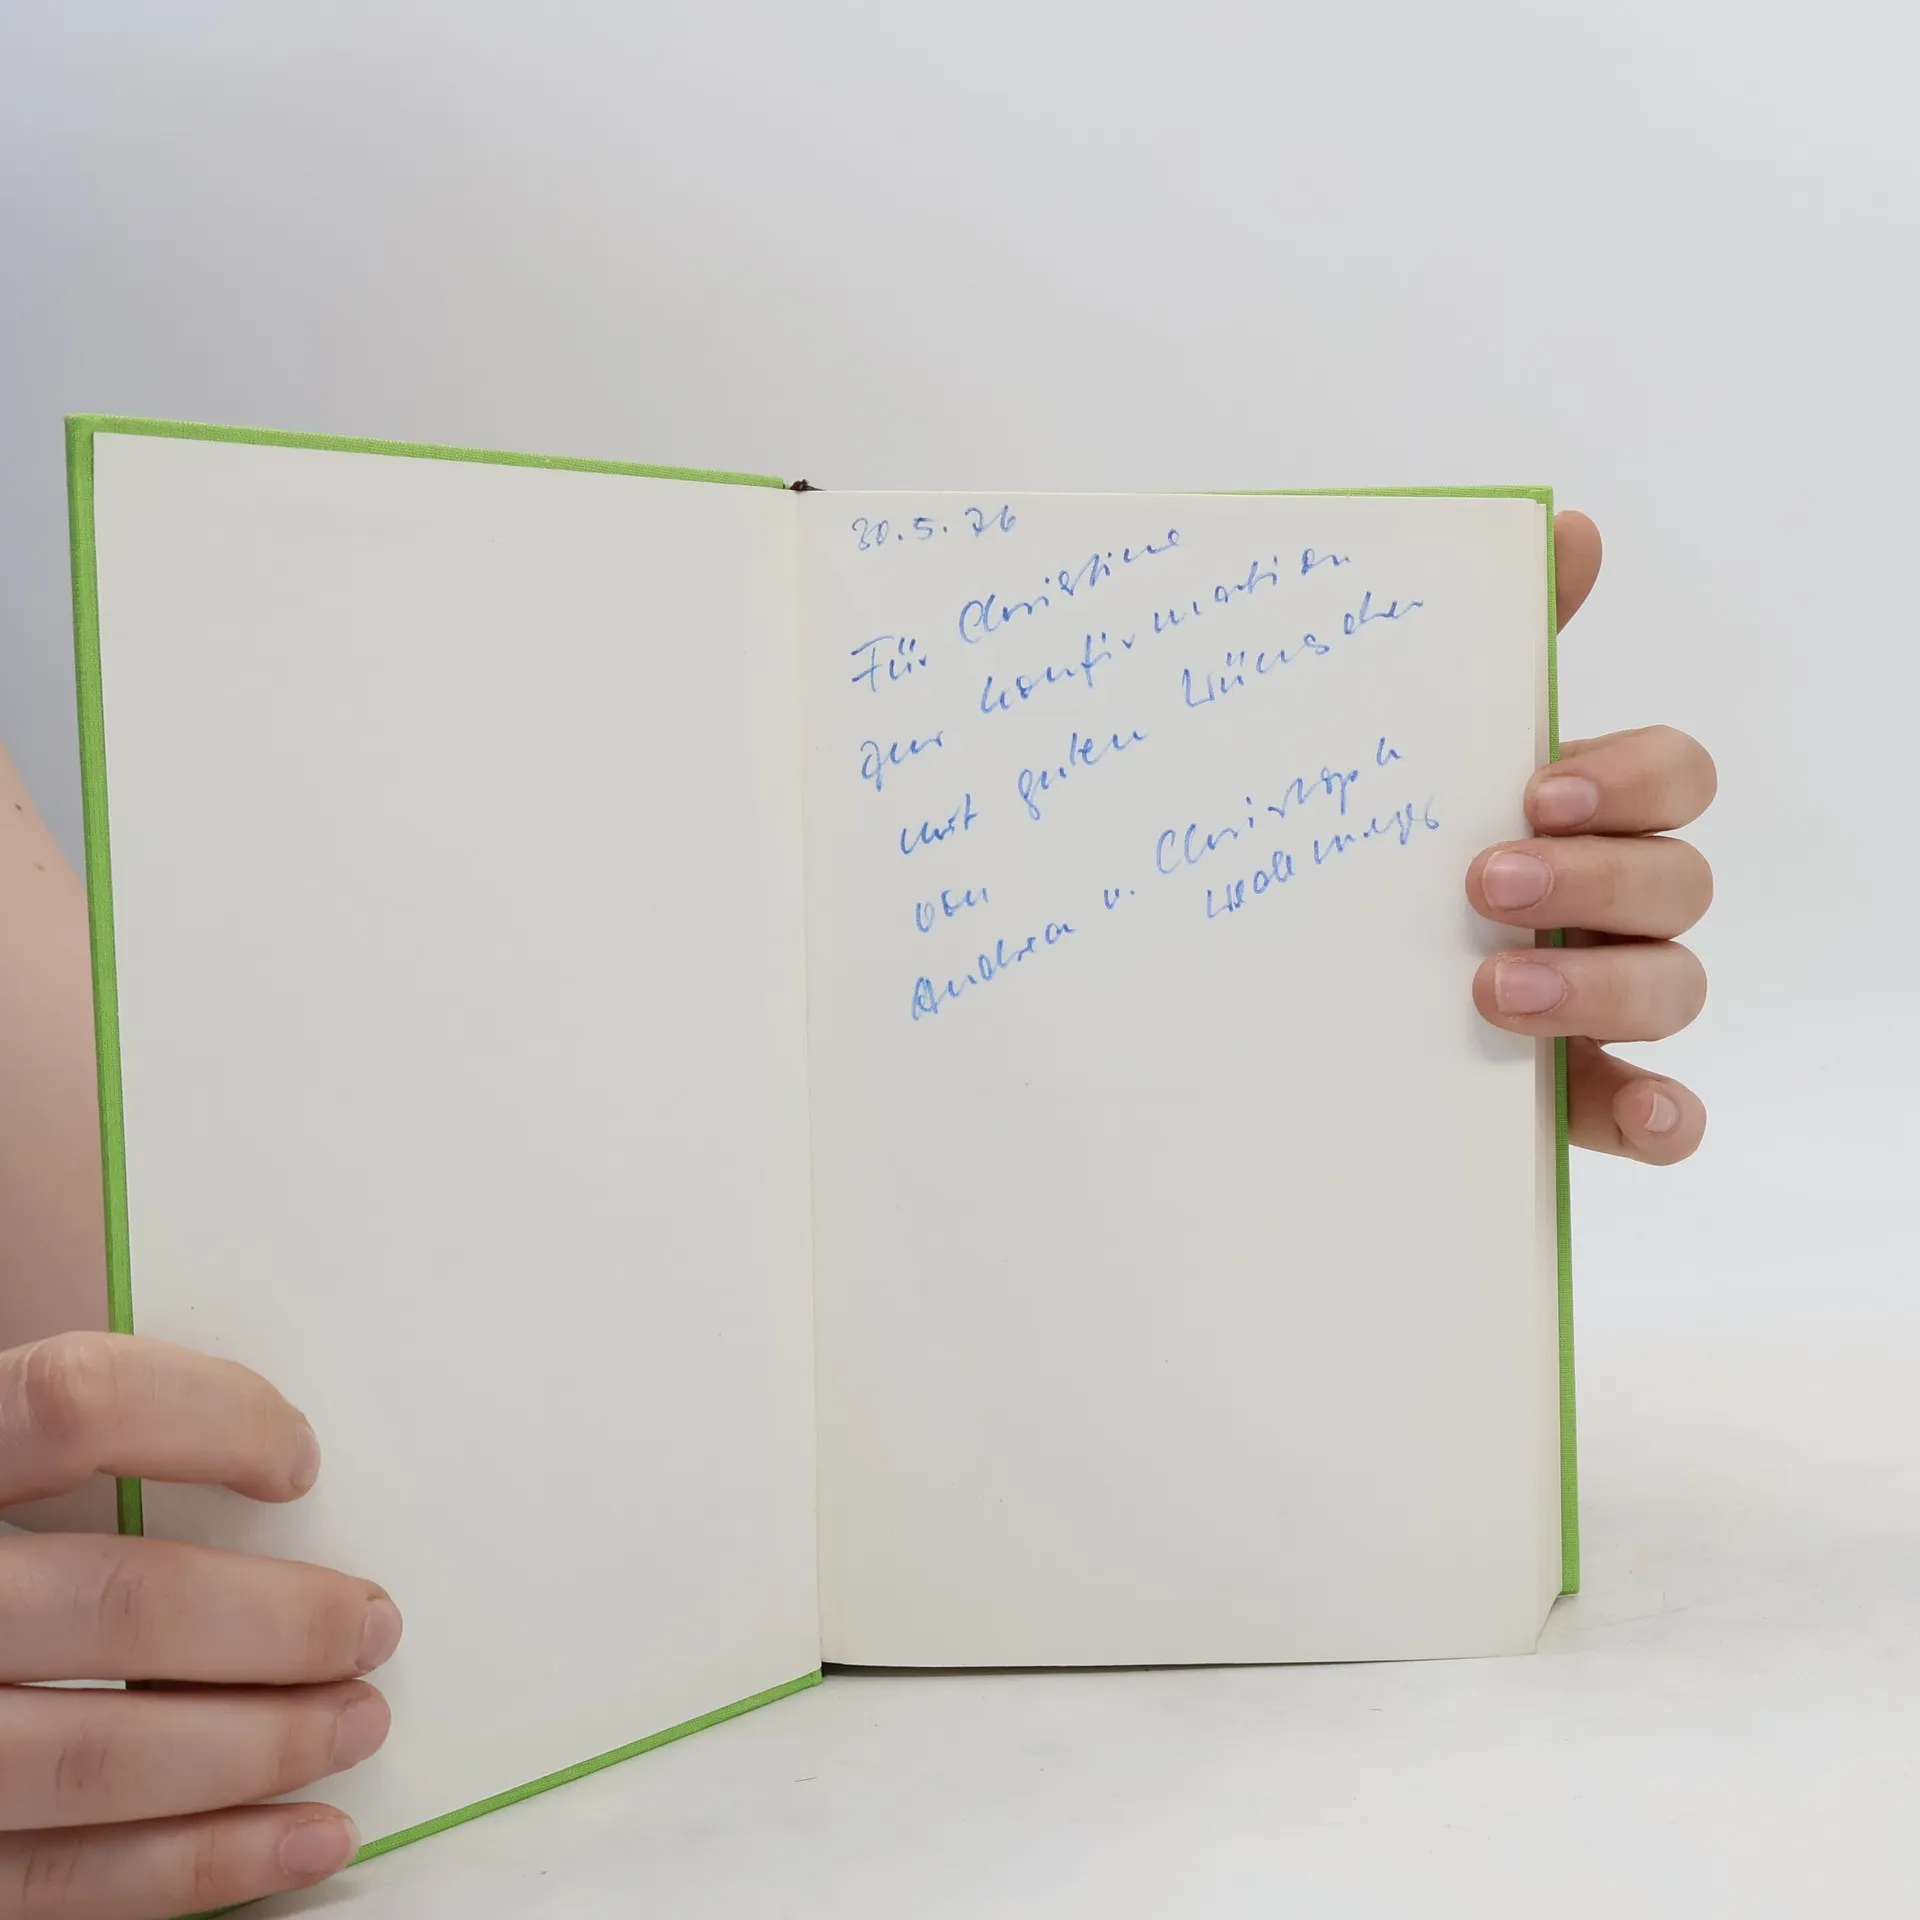 30.5.76
Für Christine
zur Konfirmation
mit guten Wünschen
von
Andrea u. Christoph